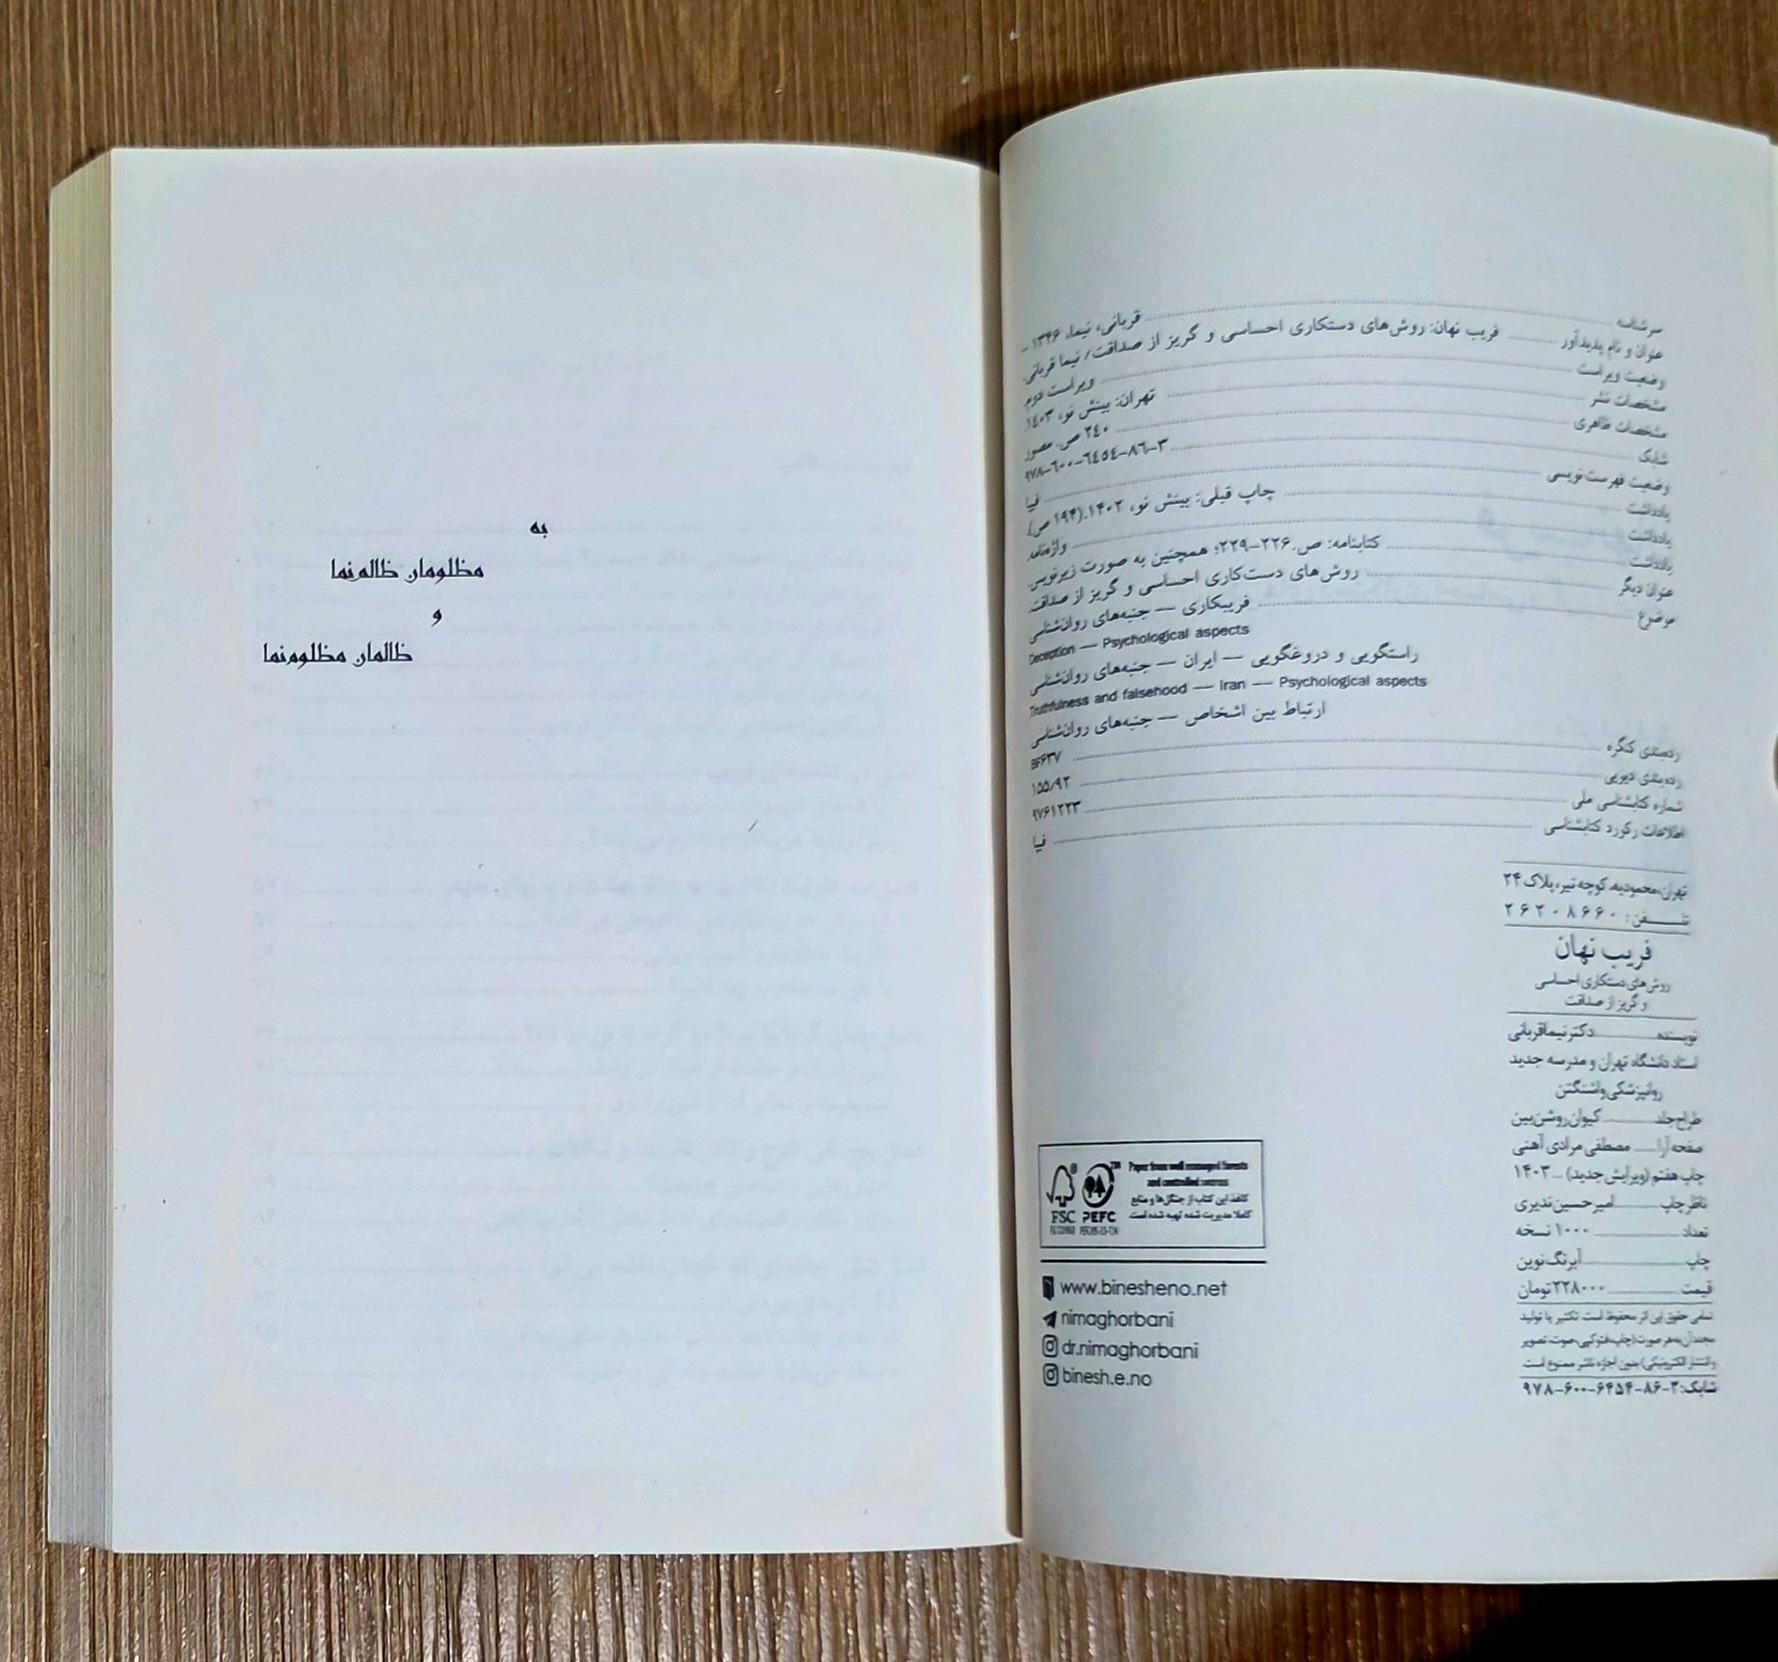 سرشناسه ........ قربانی، نیما، ۱۳۴۶ –
عنوان و نام پدیدآور ........ فریب نهان: روش‌های دستکاری احساسی و گریز از صداقت/ نیما قربانی.
وضعیت ویراست ........ ویراست دوم.
مشخصات نشر ........ تهران: بینش نو، ۱۴۰۳.
مشخصات ظاهری ........ ۲۴۰ ص. مصور
شابک ........ ۹۷۸-۶۰۰-۶۴۵۴-۸۶-۳
وضعیت فهرست‌نویسی ........ فیپا
یادداشت ........ چاپ قبلی: بینش نو، ۱۴۰۲.(۱۹۴ ص).
یادداشت ........ واژه‌نامه.
یادداشت ........ کتابنامه: ص. ۲۲۶-۲۲۹؛ همچنین به صورت زیرنویس.
عنوان دیگر ........ روش‌های دست‌کاری احساسی و گریز از صداقت.
موضوع ........ فریبکاری — جنبه‌های روان‌شناسی
Deception — Psychological aspects
راستگویی و دروغگویی — ایران — جنبه‌های روان‌شناسی
Truthfulness and falsehood — Iran — Psychological aspects
ارتباط بین اشخاص — جنبه‌های روان‌شناسی
رده‌بندی کنگره ........ BF۶۳۷
رده‌بندی دیویی ........ ۱۵۵/۹۲
شماره کتابشناسی ملی ........ ۹۷۶۱۲۲۳
اطلاعات رکورد کتابشناسی ........ فیپا
تهران، محمودیه، کوچه تیر، پلاک ۲۴
تلفن: ۲۶۲۰۸۶۶۰
فریب نهان
روش‌های دستکاری احساسی
و گریز از صداقت
نویسنده ........ دکتر نیما قربانی
استاد دانشگاه تهران و مدرسه جدید
روانپزشکی واشنگتن
طراح جلد ........ کیوان روشن‌بین
صفحه‌آرا ........ مصطفی مرادی آهنی
چاپ هفتم (ویرایش جدید) ... ۱۴۰۳
ناظر چاپ ........ امیرحسین نذیری
تعداد ........ ۱۰۰۰ نسخه
چاپ ........ آبرنگ نوین
قیمت ........ ۲۲۸۰۰۰ تومان
تمامی حقوق این اثر محفوظ است. تکثیر یا تولید
مجدد آن به هر صورت (چاپ، فتوکپی، صوت، تصویر
و انتشار الکترونیکی) بدون اجازه ناشر ممنوع است.
شابک: ۹۷۸-۶۰۰-۶۴۵۴-۸۶-۳
Paper from well managed forests
and controlled sources
کاغذ این کتاب از جنگل‌ها و منابع
کاملا مدیریت شده تهیه شده است.
FSC PEFC
www.binesheno.net
nimaghorbani
dr.nimaghorbani
binesh.e.no
به
مظلومان ظالم‌نما
و
ظالمان مظلوم‌نما